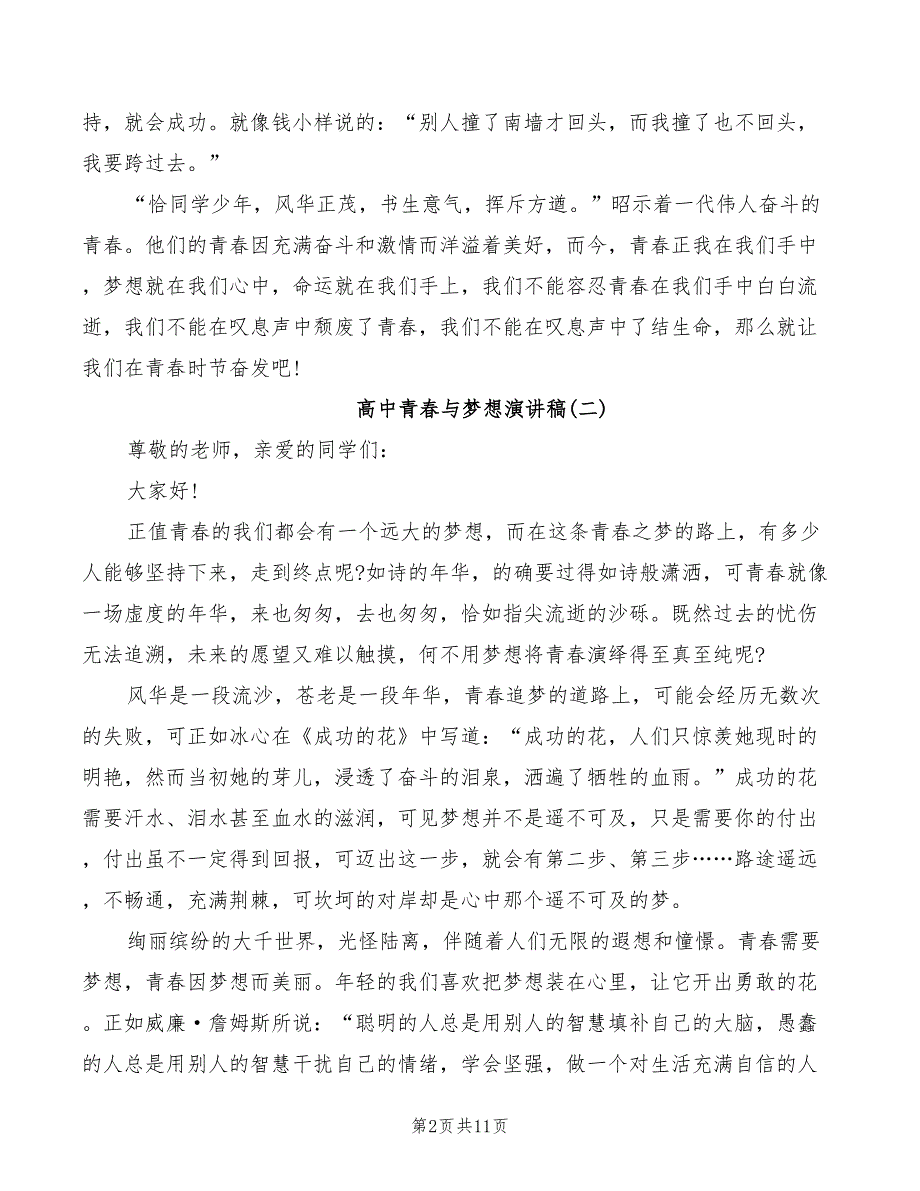 持，就会成功。就像钱小样说的：“别人撞了南墙才回头，而我撞了也不回头，
我要跨过去。”
“恰同学少年，风华正茂，书生意气，挥斥方遒。”昭示着一代伟人奋斗的
青春。他们的青春因充满奋斗和激情而洋溢着美好，而今，青春正我在我们手中
，梦想就在我们心中，命运就在我们手上，我们不能容忍青春在我们手中白白流
逝，我们不能在叹息声中颓废了青春，我们不能在叹息声中了结生命，那么就让
我们在青春时节奋发吧！
高中青春与梦想演讲稿(二)
尊敬的老师，亲爱的同学们：
大家好！
正值青春的我们都会有一个远大的梦想，而在这条青春之梦的路上，有多少
人能够坚持下来，走到终点呢?如诗的年华，的确要过得如诗般潇洒，可青春就像
一场虚度的年华，来也匆匆，去也匆匆，恰如指尖流逝的沙砾。既然过去的忧伤
无法追溯，未来的愿望又难以触摸，何不用梦想将青春演绎得至真至纯呢?
风华是一段流沙，苍老是一段年华，青春追梦的道路上，可能会经历无数次
的失败，可正如冰心在《成功的花》中写道：“成功的花，人们只惊羡她现时的
明艳，然而当初她的芽儿，浸透了奋斗的泪泉，洒遍了牺牲的血雨。”成功的花
需要汗水、泪水甚至血水的滋润，可见梦想并不是遥不可及，只是需要你的付出
，付出虽不一定得到回报，可迈出这一步，就会有第二步、第三步……路途遥远
，不畅通，充满荆棘，可坎坷的对岸却是心中那个遥不可及的梦。
绚丽缤纷的大千世界，光怪陆离，伴随着人们无限的遐想和憧憬。青春需要
梦想，青春因梦想而美丽。年轻的我们喜欢把梦想装在心里，让它开出勇敢的花
。正如威廉·詹姆斯所说：“聪明的人总是用别人的智慧填补自己的大脑，愚蠢
的人总是用别人的智慧干扰自己的情绪，学会坚强，做一个对生活充满自信的人
第2页共11页